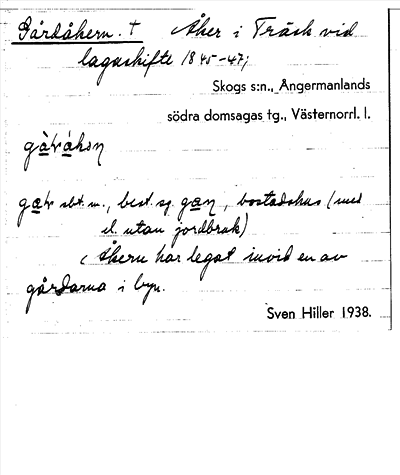 Gårdåkern. † Åker i Träsk vid
lagaskifte 1845-47;
Skogs s:n., Ångermanlands
södra domsagas tg., Västernorrl. l.
gàråkən
gar sbt. m., best. sg. gan, bostadshus (med
el. utan jordbruk)
Åkern har legat invid en av
gårdarna i byn.
Sven Hiller 1938.